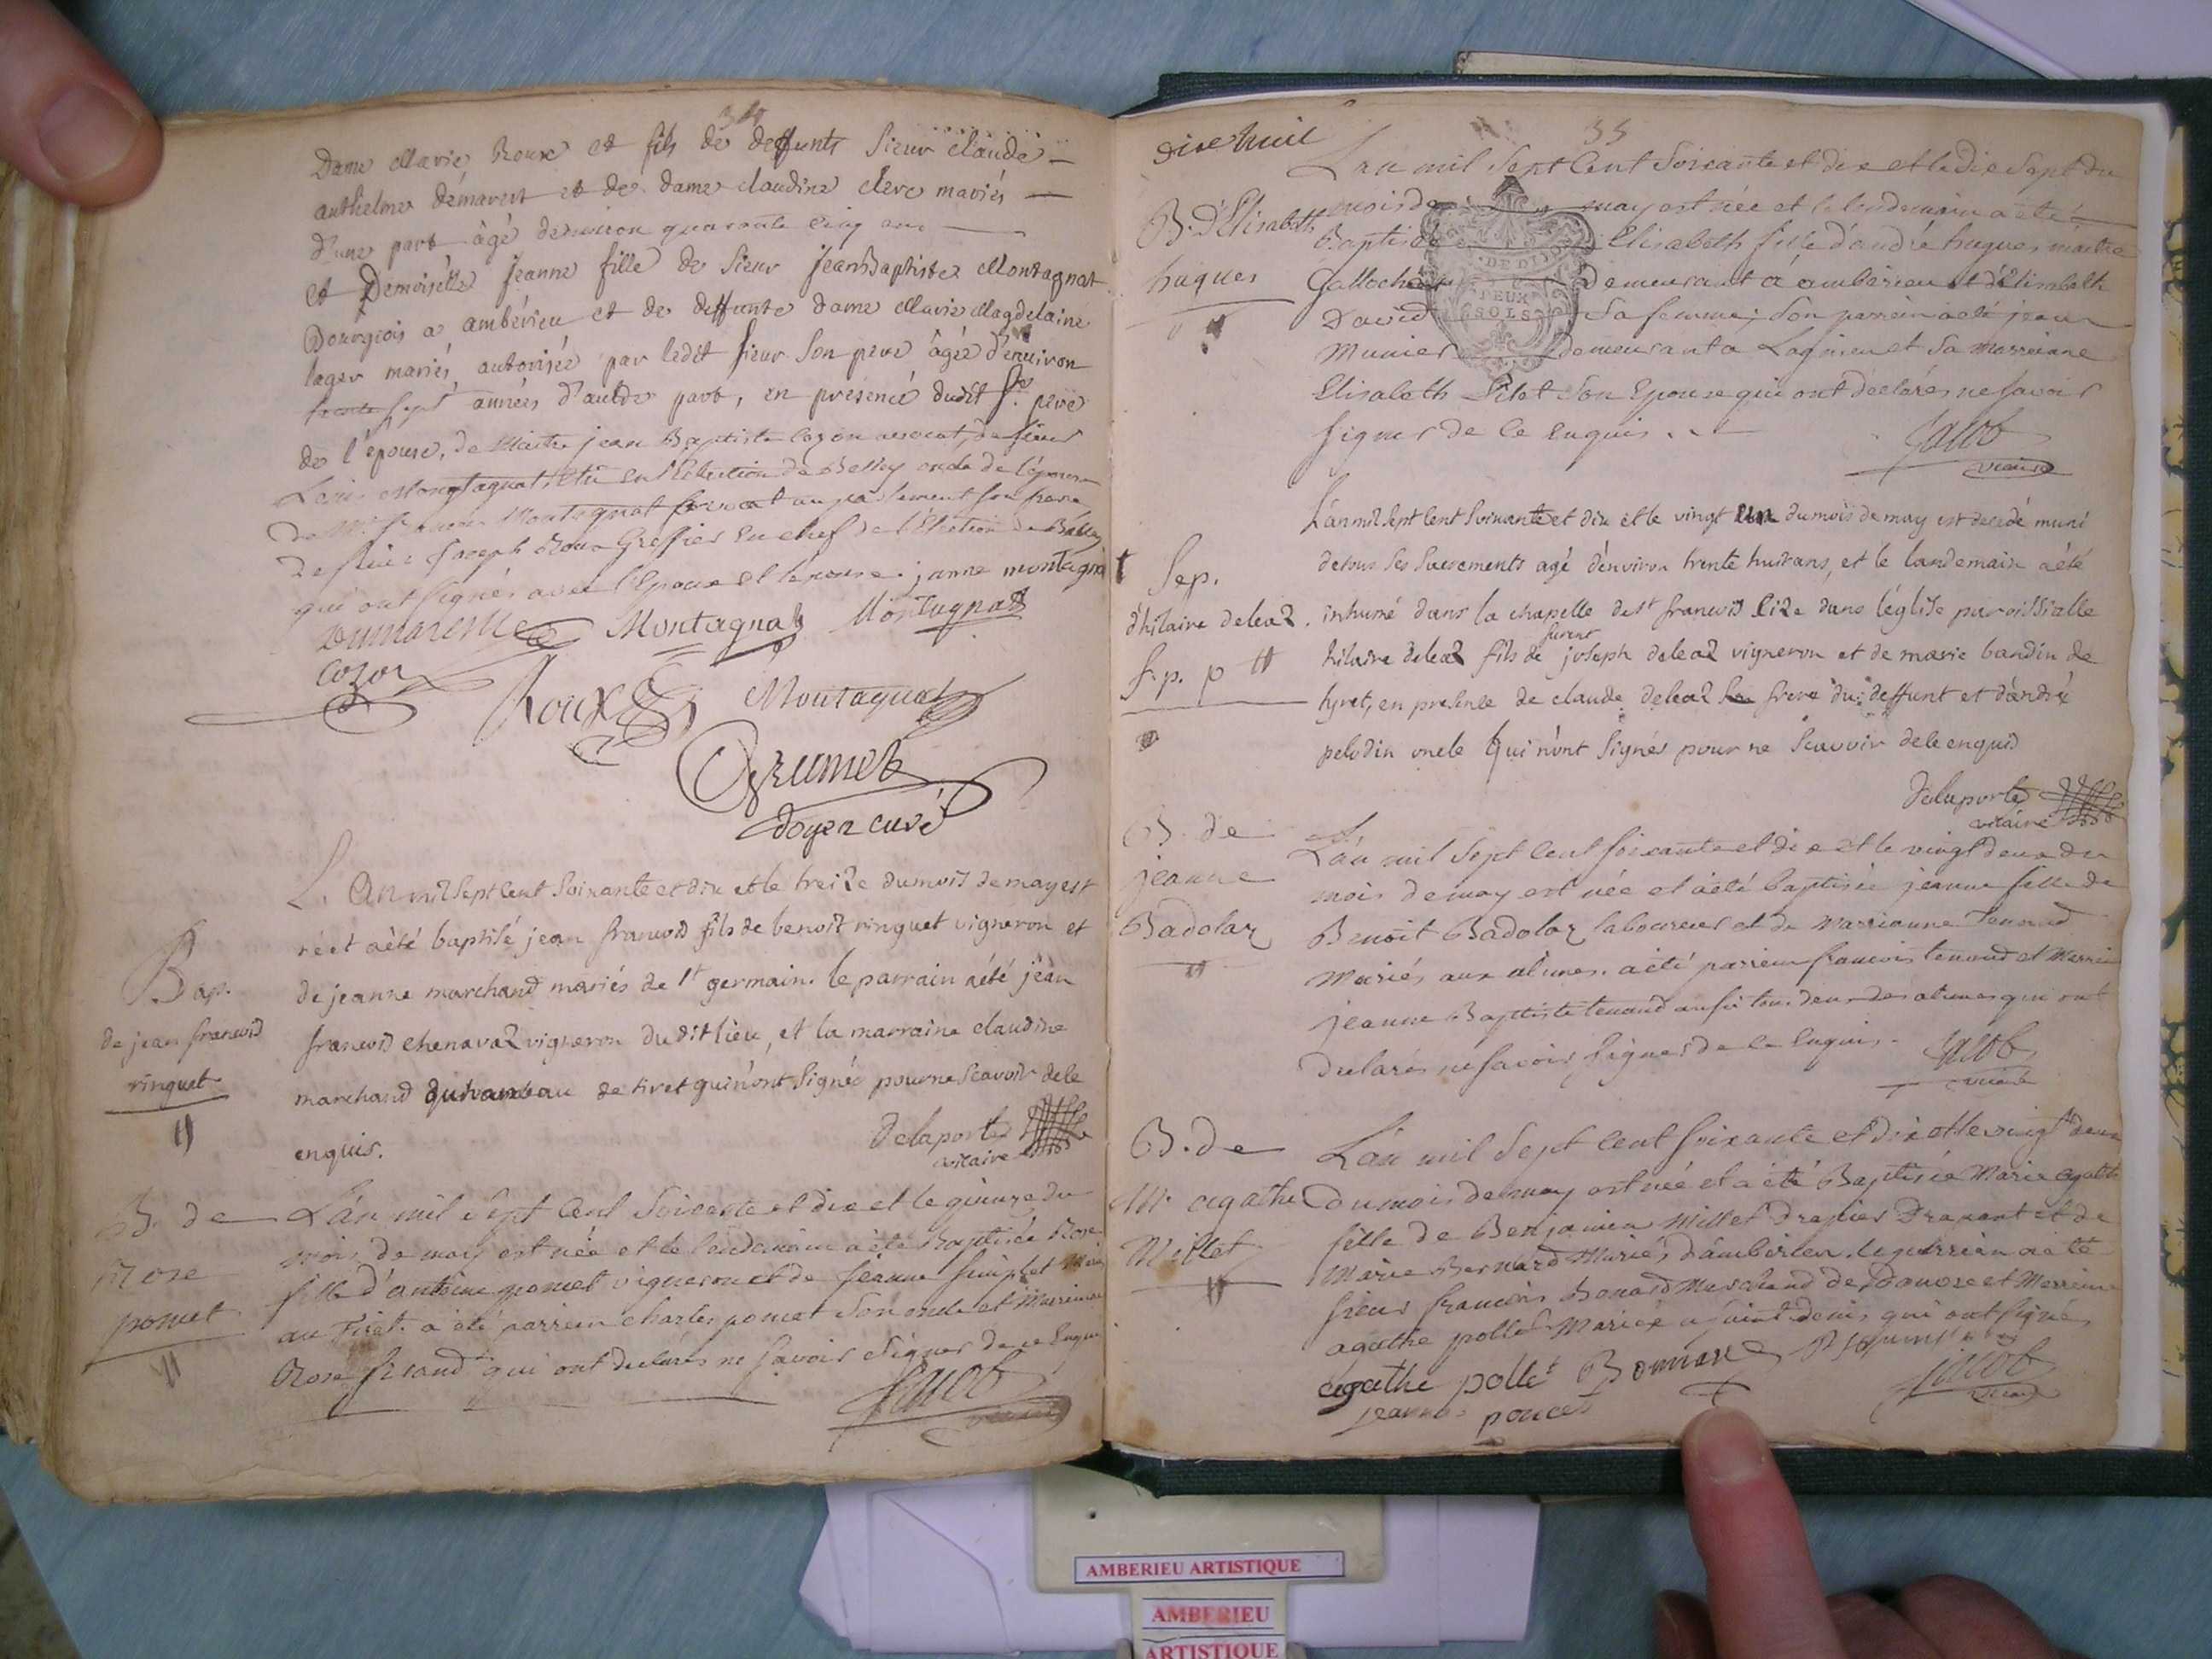 34
Dame Marie Roux et fils de deffunts Sieur Claude
anthelme démarest et de dame claudine clerc mariés
d'une part âgé denviron quarante cinq ans
et Demoiselle Jeanne fille de Sieur Jean Baptiste Montagnat
Bourgeois a ambérieu et de deffunte dame Marie Magdelaine
lager mariés, autorisée par ledit sieur Son pere âgée d'environ
trente sept années d'autre part, en présence dudit Sr. pere
de l'épouse, de Maitre jean Baptiste cozon avocat, de sieur
Louis Montagnat, élu en l'Election de Belley oncle de l'épouse
de Mr. Montagnat avocat au parlement son frere
de sieur Joseph Roux Greffier en chef de l'Election de Belley
qui ont signés avec l'Epoux et l'epouse. janne montagnat
Dumareste Montagnat Montagnat
cozon
Roux Montagnat
Grumet
doyen curé
Bap.
de jean francois
ringuet
L'An mil Sept Cent Soixante et dix et le treize du mois de may est
né et a été baptisé jean francois fils de benoit ringuet vigneron et
de jeanne marchand mariés de st germain. le parrain a été jean
francois chenavaz vigneron dudit lieu, et la marraine claudine
marchand du hameau de tiret qui n'ont Signés pour ne Scavoir de ce
enquis.
Delaporte
vicaire
B. de
Rose
poncet
L'an mil Sept Cent Soixante et dix et le quinze du
mois de may est née et le lendemain a été Baptisée Rose
fille d'antoine poncet vigneron et de jeanne
au Tiret a été parrein charles poncet son oncle et Marrienne
Rose qui ont declarés ne savoir Signer de ce Enquis
Jacob
vicaire
dixe huit
35
B. d'Elisabeth
hugues
L'an mil Sept Cent Soixante et dix et le dix Sept du
mois de may est née et le lendemain a été
Baptisée Elisabeth fille d'andré hugues maitre
Gallochier demeurant a ambérieu et d'Elisabeth
David sa femme; Son parrein a été jean
Munier demeurant a Lagnieu et Sa Marreinne
Elisabeth Pilot Son Epouse qui ont déclarés ne Savoir
signer de ce Enquis.
DEUX
SOLS
Jacob
vicaire
Sep.
d'hilaire deleaz.
f. p. p
L'an mil Sept Cent Soixante et dix et le vingt un du mois de may est decedé muni
de tous Ses Sacrements agé d'environ trente huit ans, et le landemain a été
inhumé dans la chapelle de st francois Size dans l'église paroissialle
hilaire deleaz fils de furent joseph deleaz vigneron et de marie bandin de
tyret, en presence de claude deleaz frere du deffunt et d'andré
pelodin oncle qui n'ont Signés pour ne Scavoir de ce enquis
Delaporte
vicaire
B. de
jeanne
Badolaz
L'an mil Sept Cent Soixante et dix et le vingt deux du
mois de may est née et a été baptisée jeanne fille de
Benoit Badolaz laboureur et de Marrianne Tenand
Mariés aux alimes. a été parrein francois tenand et Marreine
jeanne Baptiste tenand aussi tous deux des alimes qui ont
declarés ne savoir signer de ce Enquis.
Jacob
vicaire
B. de
M. agathe
Millet
L'an mil Sept Cent Soixante et dix et le vingt deux
du mois de may est née et a été Baptisée Marie agathe
fille de Benjamin Millet drapier Drapant et de
Marie Bernard Mariés d'ambérieu. le parrein a été
sieur francois Bonard Marchand de et Marreine
agathe pollet Mariée a saint denis qui ont signés
agathe pollet
jeanne poncet
jacob
vicaire
AMBERIEU ARTISTIQUE
AMBERIEU
ARTISTIQUE